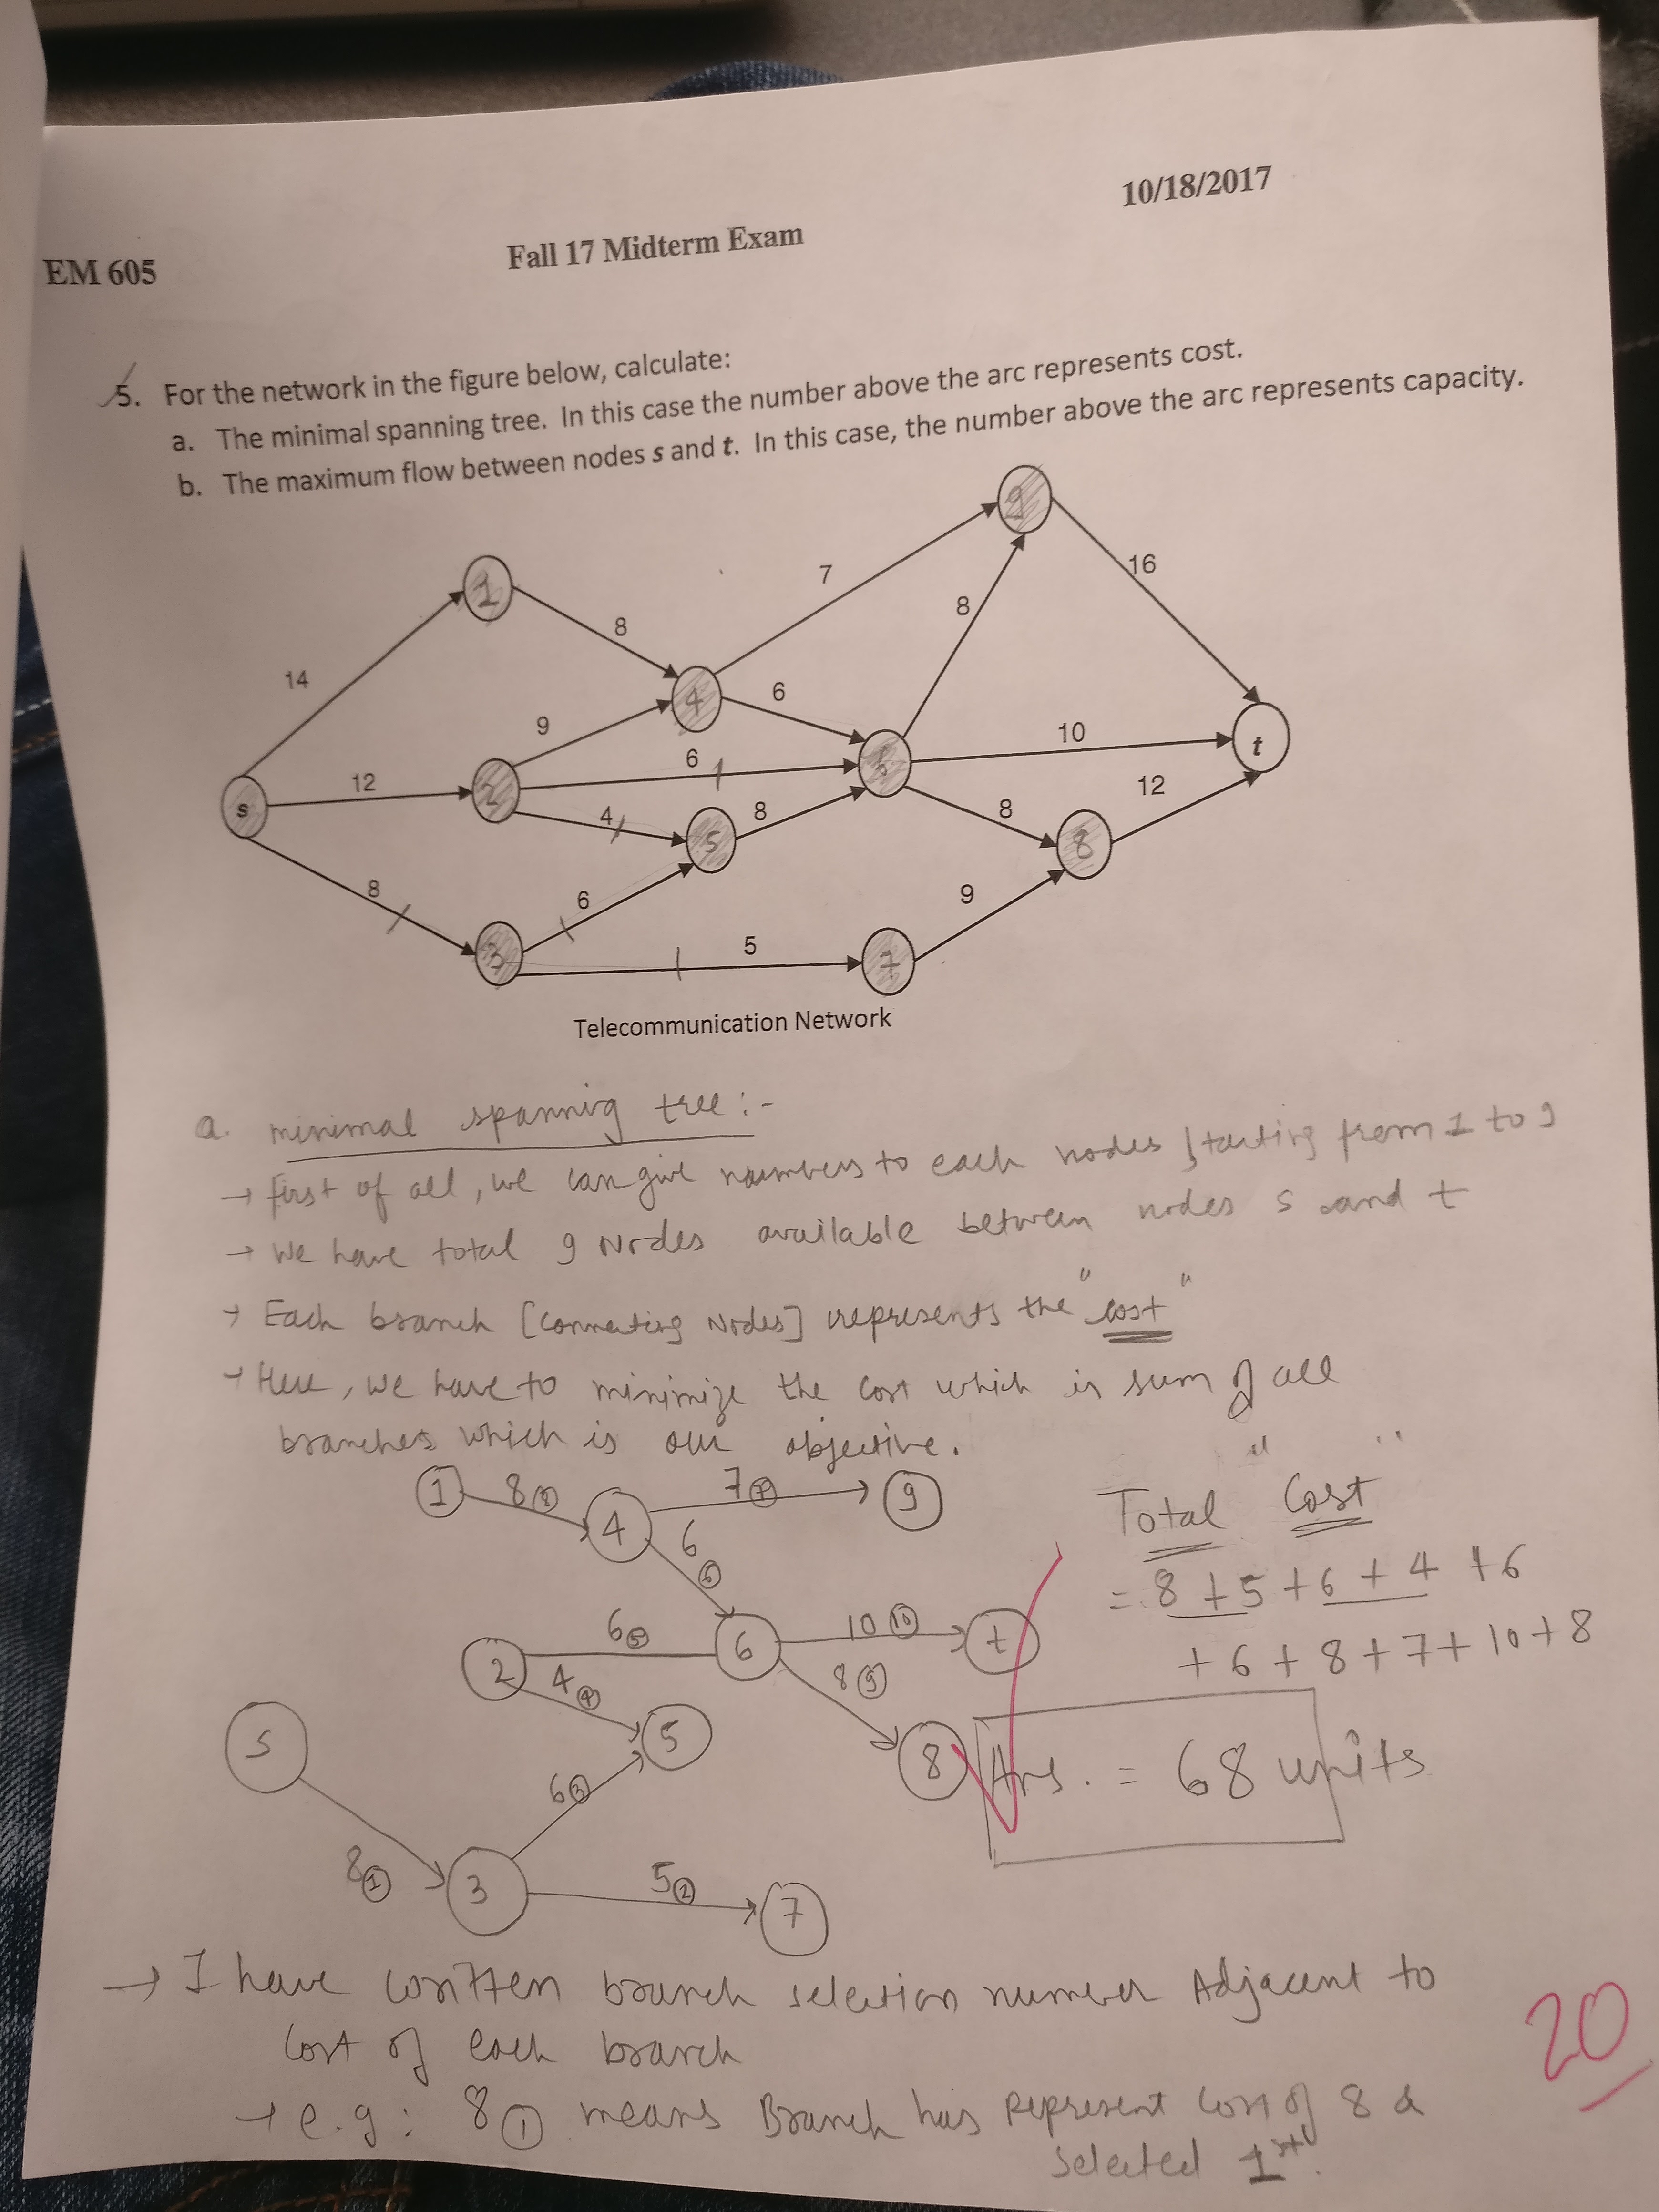 10/18/2017
EM 605
Fall 17 Midterm Exam
5. For the network in the figure below, calculate:
a. The minimal spanning tree. In this case the number above the arc represents cost.
b. The maximum flow between nodes s and t. In this case, the number above the arc represents capacity.
9
16
7
1
8
8
14
4
6
9
6
10
t
12
2
6
s
4
8
8
12
5
8
8
6
9
3
5
7
Telecommunication Network
a. minimal spanning tree :-
→ first of all, we can give numbers to each nodes starting from 1 to 9
→ We have total 9 Nodes available between nodes s and t
→ Each branch [connecting Nodes] represents the "cost"
→ Here, we have to minimize the cost which is sum of all
branches which is our objective.
1 8 ⑧ 4 7 ⑦ 9
6 ⑥
2 6 ⑤ 6 10 ⑩ t
4 ④ 5
8 ⑨ 8
s
6 ③
8 ① 3 5 ② 7
Total "Cost"
= 8 + 5 + 6 + 4 + 6
+ 6 + 8 + 7 + 10 + 8
Ans. = 68 units
→ I have written branch selection number Adjacent to
cost of each branch
→ e.g : 8 ① means Branch has represent cost of 8 &
selected 1st.
20